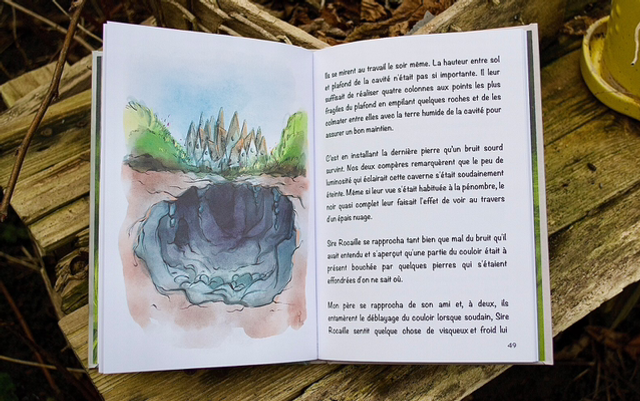 Ils se mirent au travail le soir même. La hauteur entre sol
et plafond de la cavité n'était pas si importante. Il leur
suffisait de réaliser quatre colonnes aux points les plus
fragiles du plafond en empilant quelques roches et de les
colmater entre elles avec la terre humide de la cavité pour
assurer un bon maintien.
C'est en installant la dernière pierre qu'un bruit sourd
survint. Nos deux compères remarquèrent que le peu de
luminosité qui éclairait cette caverne s'était soudainement
éteinte. Même si leur vue s'était habituée à la pénombre, le
noir quasi complet leur faisait l'effet de voir au travers
d'un épais nuage.
Sire Rocaille se rapprocha tant bien que mal du bruit qu'il
avait entendu et s'aperçut qu'une partie du couloir était à
présent bouchée par quelques pierres qui s'étaient
effondrées d'on ne sait où.
Mon père se rapprocha de son ami et, à deux, ils
entamèrent le déblayage du couloir lorsque soudain, Sire
Rocaille sentit quelque chose de visqueux et froid lui
49